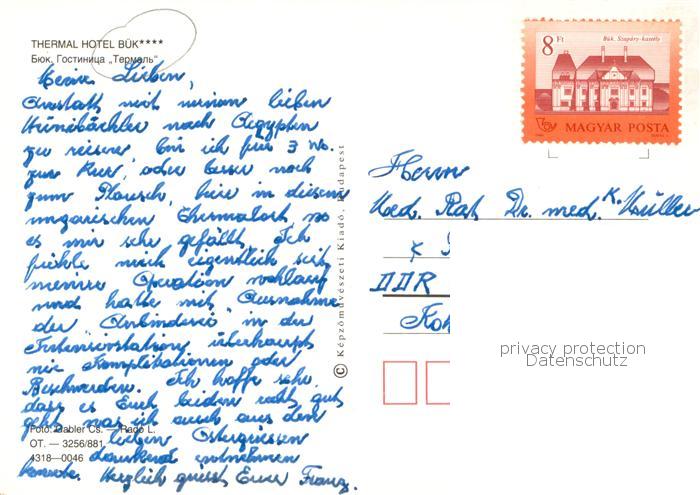 THERMAL HOTEL BÜK****
Бюк. Гостиница „Термаль"
Meine Lieben,
Anstatt mit meinem lieben
nach Aegypten
zu reisen bin ich für 3 Wo.
zur Kur, oder besser noch
zum Plausch, hier in diesem
ungarischen Thermalort, wo
es mir sehr gefällt. Ich
fühle mich eigentlich seit
meiner Operation wohlauf
und hatte mit Ausnahme
der „Anbinderei" in der
Intensivstation überhaupt
nie Komplikationen oder
Beschwerden. Ich hoffe sehr,
dass es Euch beiden recht gut
geht, was ich auch aus den
Foto: Gabler Cs. — Radó L.
lieben Ostergrüssen
OT. — 3256/881
dankend entnehmen
4318—0046
konnte. Herzlich grüsst Euer Franz.
© Képzőművészeti Kiadó, Budapest
8 Ft
Bük. Szapáry-kastély
MAGYAR POSTA
Herrn
Med. Rat Dr. med. K. Müller
DDR
privacy protection
Datenschutz